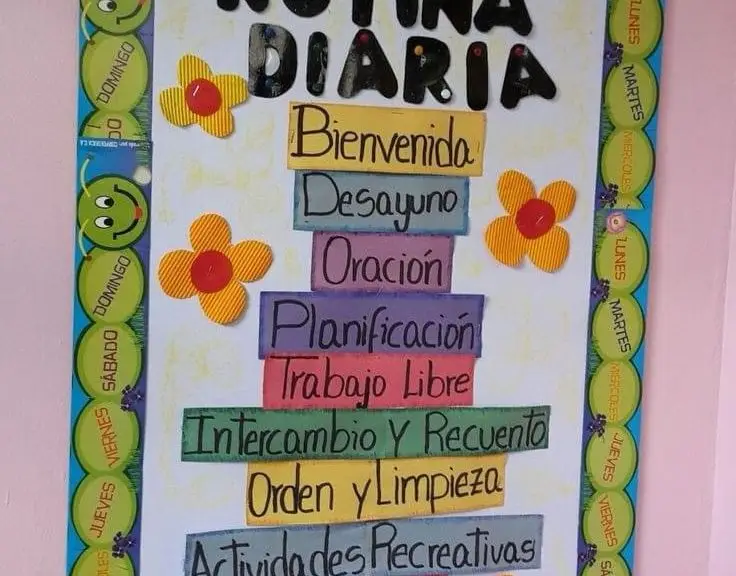 RUTINA
DIARIA
Bienvenida
Desayuno
Oración
Planificación
Trabajo Libre
Intercambio Y Recuento
Orden y Limpieza
Actividades Recreativas
DOMINGO
DO
DOMINGO
SÁBADO
VIERNES
JUEVES
LES
LUNES
MARTES
MIERCOLES
LUNES
MARTES
MIERCOLES
JUEVES
VIERNES
SÁ